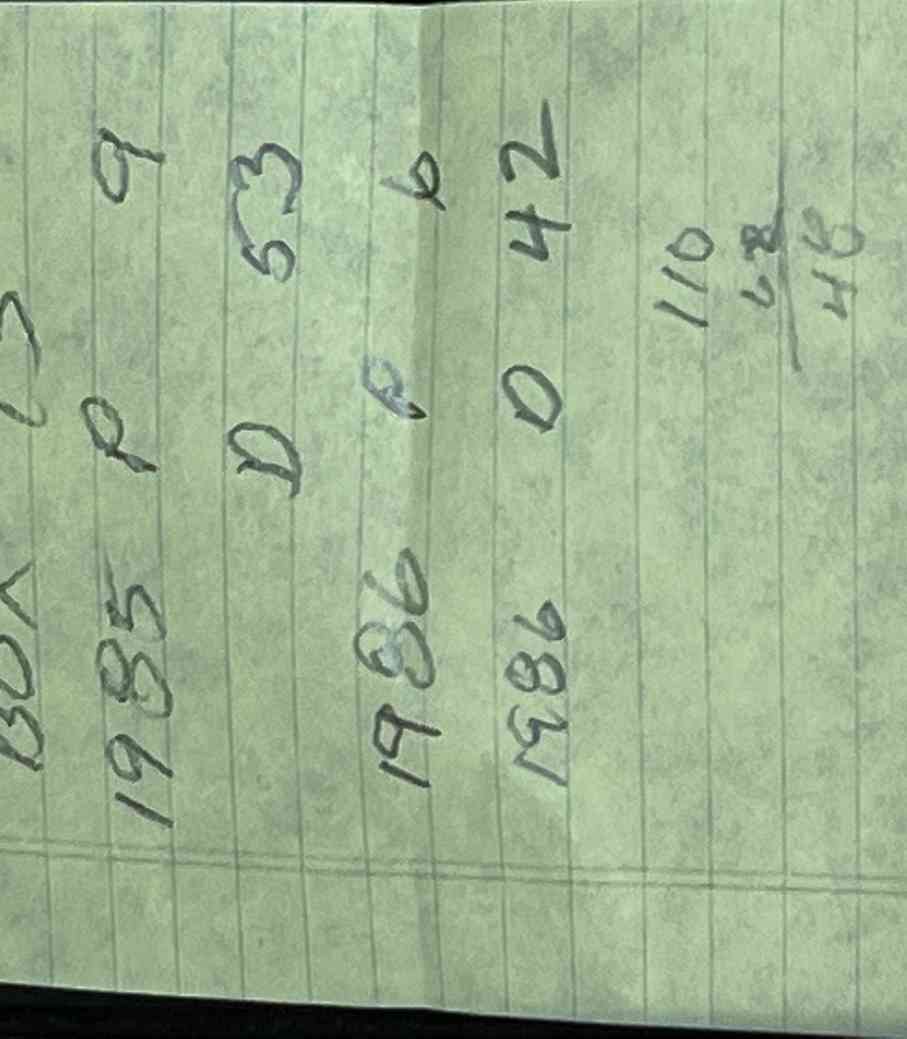 BOX
1985 P 9
D 53
1986 P 6
1986 D 42
110
48